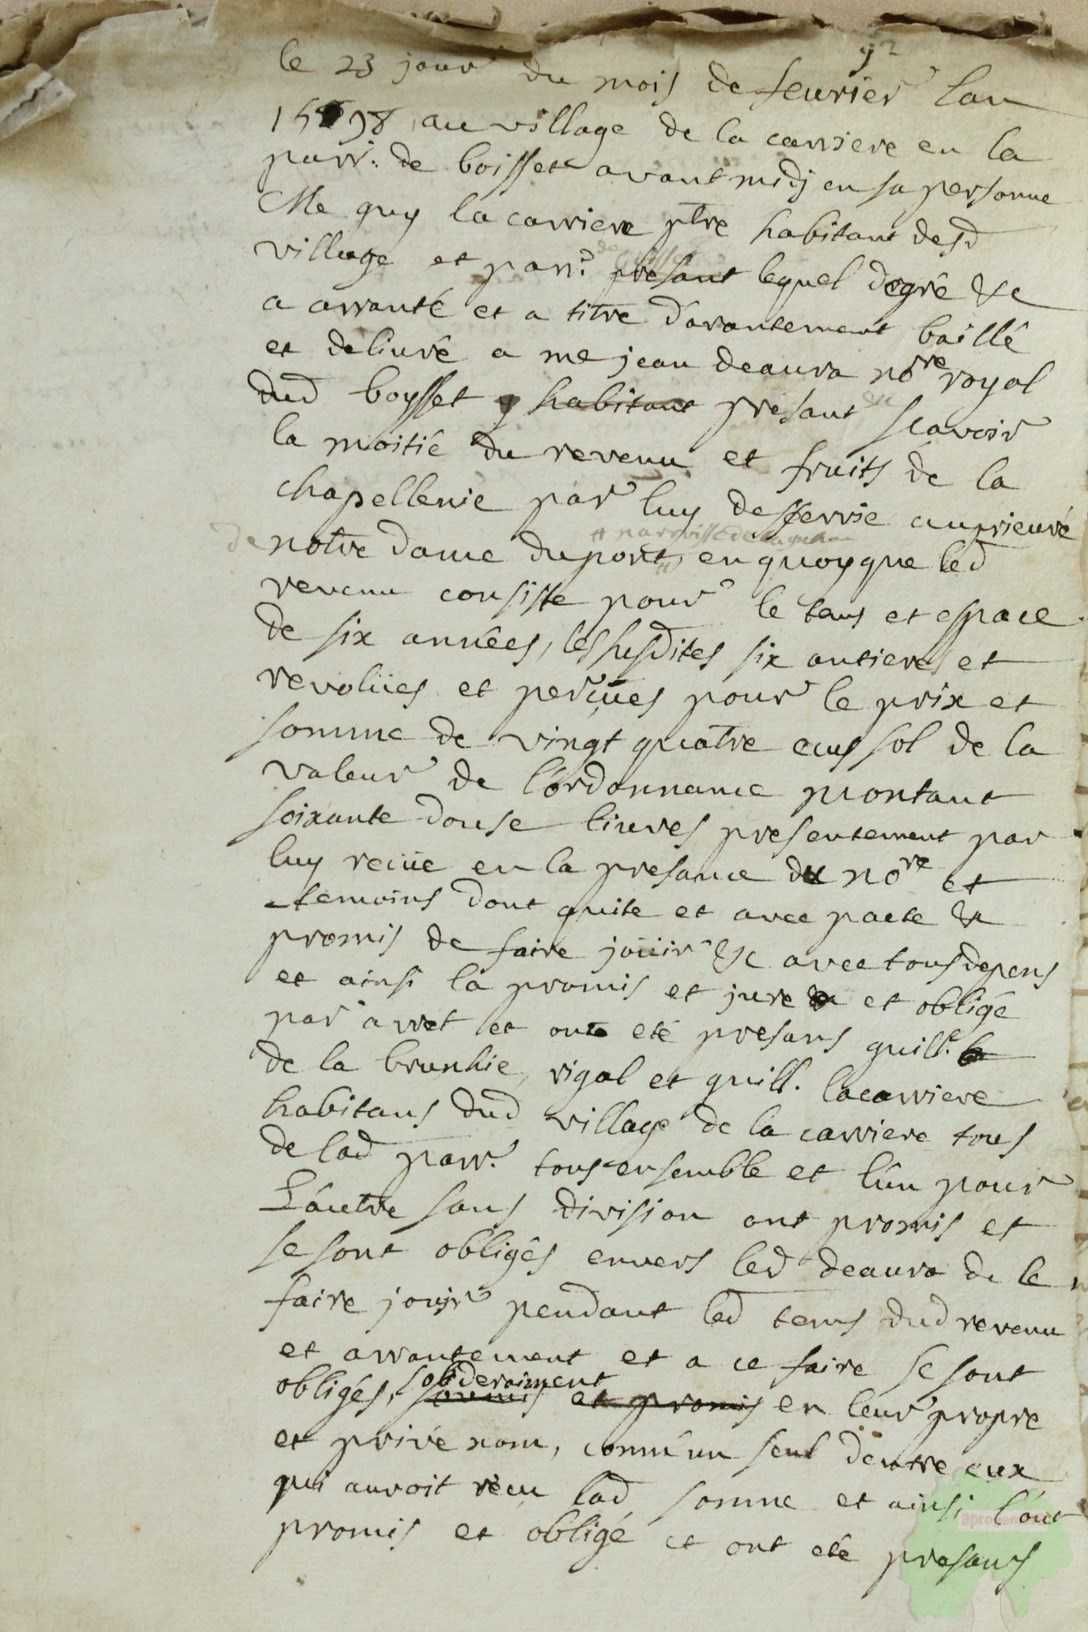 92
le 23 jour du mois de feurier lan
1598 au village de la carriere en la
parr. de boisset avant midj en sa personne
Me guy lacarriere ptre habitant desd
village et parr. presant lequel degré &c
a arranté et a titre d'arantement baillé
et deliuré a me jean deaura nore royal
dud boysset habitant presant scavoir
la moitié du revenu et fruits de la
chapellenie par luy desservie au prieuré
de notre dame du pont, en quoyque led
revenu consiste pour le tems et espace
de six années, les susdites six antieres et
revolües et perçües pour le prix et
somme de vingt quatre ecus sol de la
valeur de l'ordonnance montant
soixante douse liures presentement par
luy reciie en la presance du nore et
temoins dont quite et avec pacte &c
promis de faire joüir &c avec tous depens
et ainsi la promis et juré et obligé
par arret et ont eté presans guill.e
de la brunhie, rigal et guill. lacarriere
habitans dud village de la carriere tous
de lad parr. tous ensemble et l'un pour
L'autre sans division ont promis et
se sont obligés envers led deaura de le
faire jouir pendant led tems dud revenu
et arrantement et a ce faire se sont
obligés, solideraiment soumis et promis en leur propre
et privé nom, comm'un seul dentre eux
qui auroit recu lad somme et ainsi l'ont
promis et obligé et ont eté presans